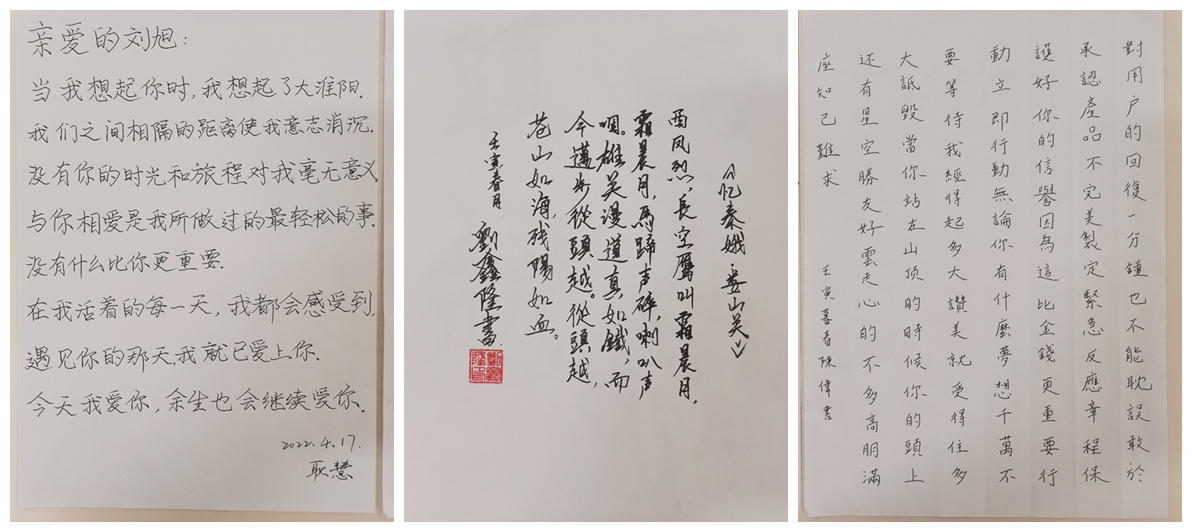 亲爱的刘旭:
当我想起你时,我想起了大淮阳.
我们之间相隔的距离使我意志消沉.
没有你的时光和旅程对我毫无意义
与你相爱是我所做过的最轻松的事.
没有什么比你更重要.
在我活着的每一天,我都会感受到.
遇见你的那天,我就已爱上你.
今天我爱你,余生也会继续爱你.
2022.4.17.
耿慧
《忆秦娥·娄山关》
西风烈,長空鴈叫霜晨月,
霜晨月,馬蹄声碎,喇叭声
咽。雄关漫道真如鐵,而
今邁步從頭越。從頭越,
苍山如海,残陽如血。
壬寅春月 劉鑫隆書
對用户的回復一分鐘也不能耽誤敢於
承認產品不完美製定緊急反應章程保
護好你的信譽因為這比金錢更重要行
動立即行動無論你有什麼夢想千萬不
要等待我經得起多大讚美就受得住多
大詆毀當你站在山顶的時候你的頭上
还有星空勝友好雲走心的不多高朋滿
座知己難求 壬寅暮春陳偉書